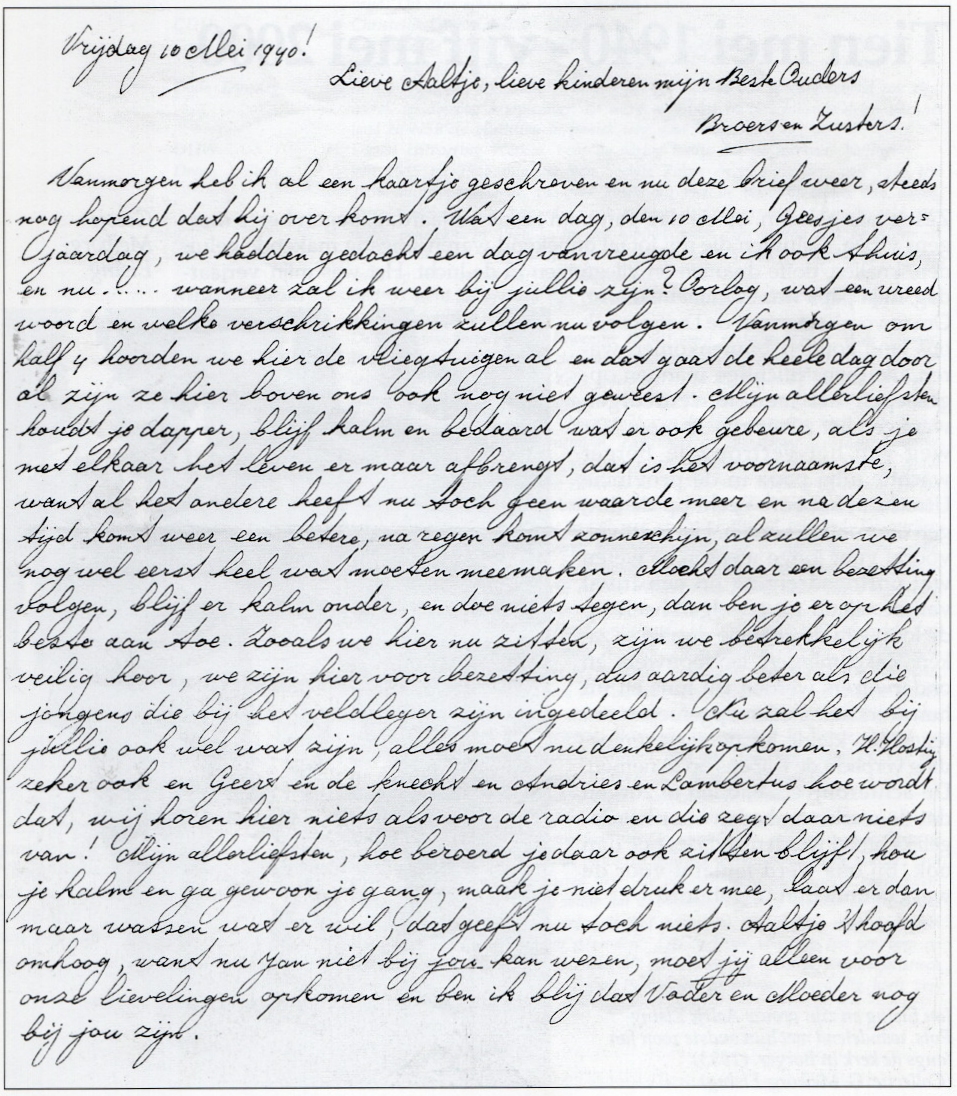 Vrijdag 10 Mei 1940!
Lieve Aaltje, lieve kinderen mijn Beste Ouders
Broers en Zusters!
Vanmorgen heb ik al een kaartje geschreven en nu deze brief weer, steeds
nog hopend dat hij over komt. Wat een dag, den 10 Mei, Geesjes ver=
jaardag, we hadden gedacht een dag van vreugde en ik ook thuis,
en nu...... wanneer zal ik weer bij jullie zijn? Oorlog, wat een wreed
woord en welke verschrikkingen zullen nu volgen. Vanmorgen om
half 4 hoorden we hier de vliegtuigen al en dat gaat de heele dag door
al zijn ze hier boven ons ook nog niet geweest. Mijn allerliefsten
houdt je dapper, blijf kalm en bedaard wat er ook gebeure, als je
met elkaar het leven er maar afbrengt, dat is het voornaamste,
want al het andere heeft nu toch geen waarde meer en na dezen
tijd komt weer een betere, na regen komt zonneschijn, al zullen we
nog wel eerst heel wat moeten meemaken. Mocht daar een bezetting
volgen, blijf er kalm onder, en doe niets tegen, dan ben je er op het
beste aan toe. Zooals we hier nu zitten, zijn we betrekkelijk
veilig hoor, we zijn hier voor bezetting, dus aardig beter als die
jongens die bij het veldleger zijn ingedeeld. Nu zal het bij
jullie ook wel wat zijn, alles moet nu denkelijk opkomen. H. Hosting
zeker ook en Geert en de knecht en Andries en Lambertus hoe wordt
dat, wij horen hier niets als voor de radio en die zegt daar niets
van! Mijn allerliefsten, hoe beroerd je daar ook zitten blijft, hou
je kalm en ga gewoon je gang, maak je niet druk er mee, laat er dan
maar wassen wat er wil, dat geeft nu toch niets. Aaltje 't hoofd
omhoog, want nu Jan niet bij jou kan wezen, moet jij alleen voor
onze lievelingen opkomen en ben ik blij dat Vader en Moeder nog
bij jou zijn.